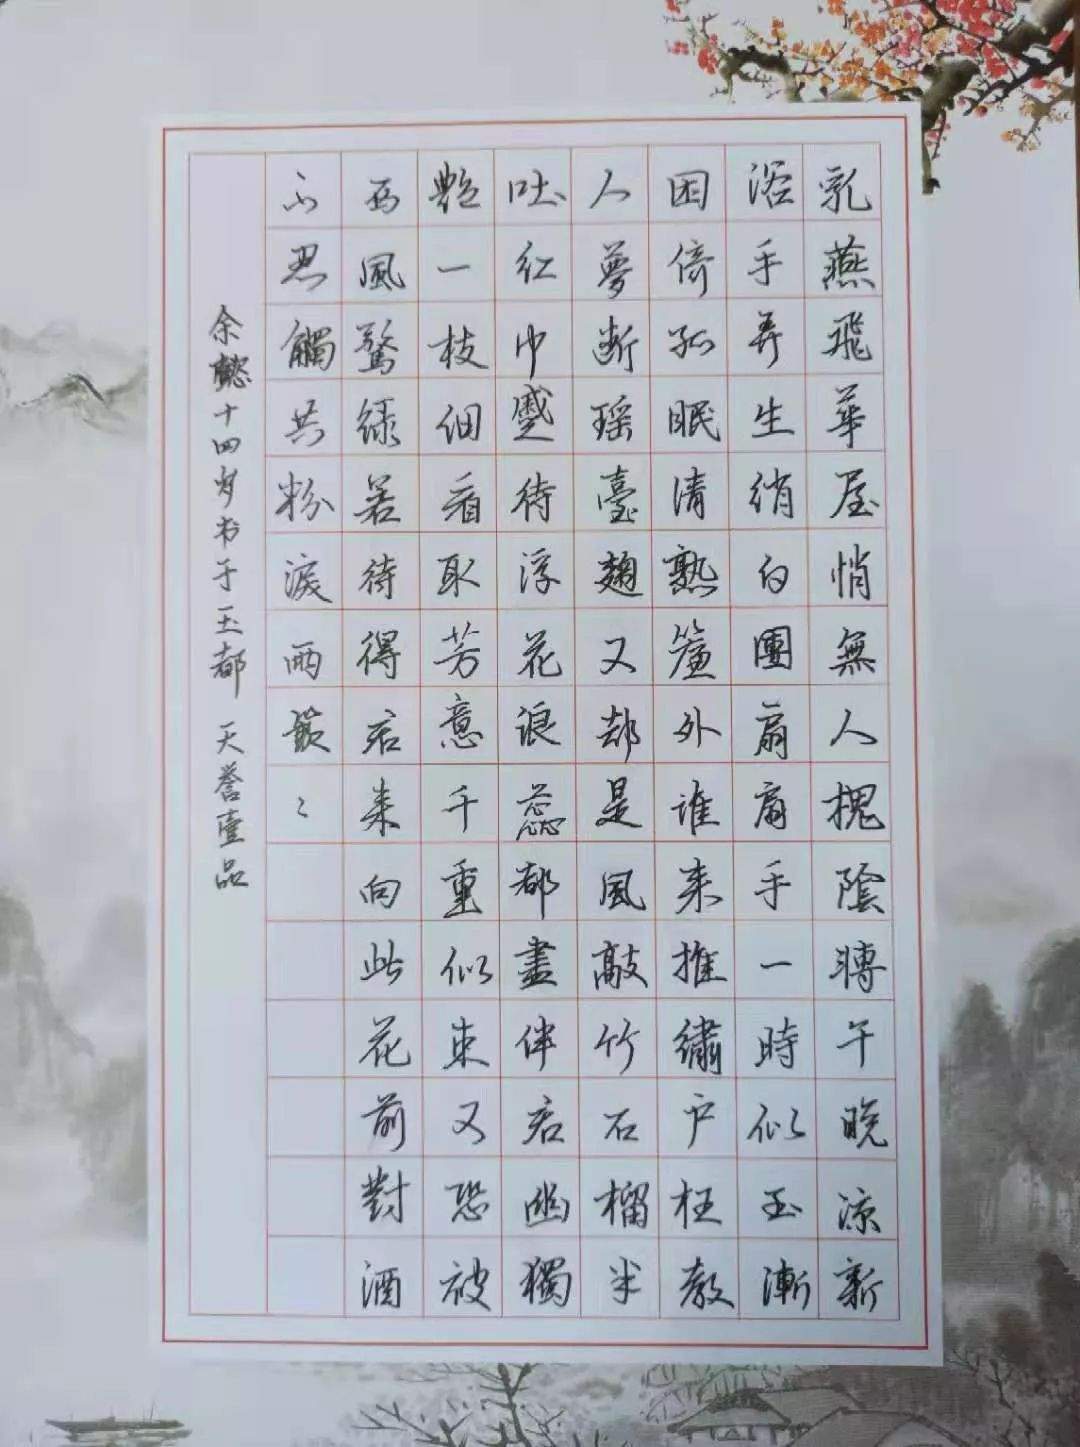 乳燕飛華屋悄無人槐陰轉午晚涼新
浴手弄生綃白團扇扇手一時似玉漸
困倚孤眠清熟簾外誰來推繡户枉教
人夢斷瑶臺麯又却是風敲竹石榴半
吐紅巾蹙待浮花浪蕊都盡伴君幽獨
艷一枝細看取芳意千重似束又恐被
西風驚綠若待得君來向此花前對酒
不忍觸共粉淚兩簌〻
余懿十四岁书于玉都 天誉壹品